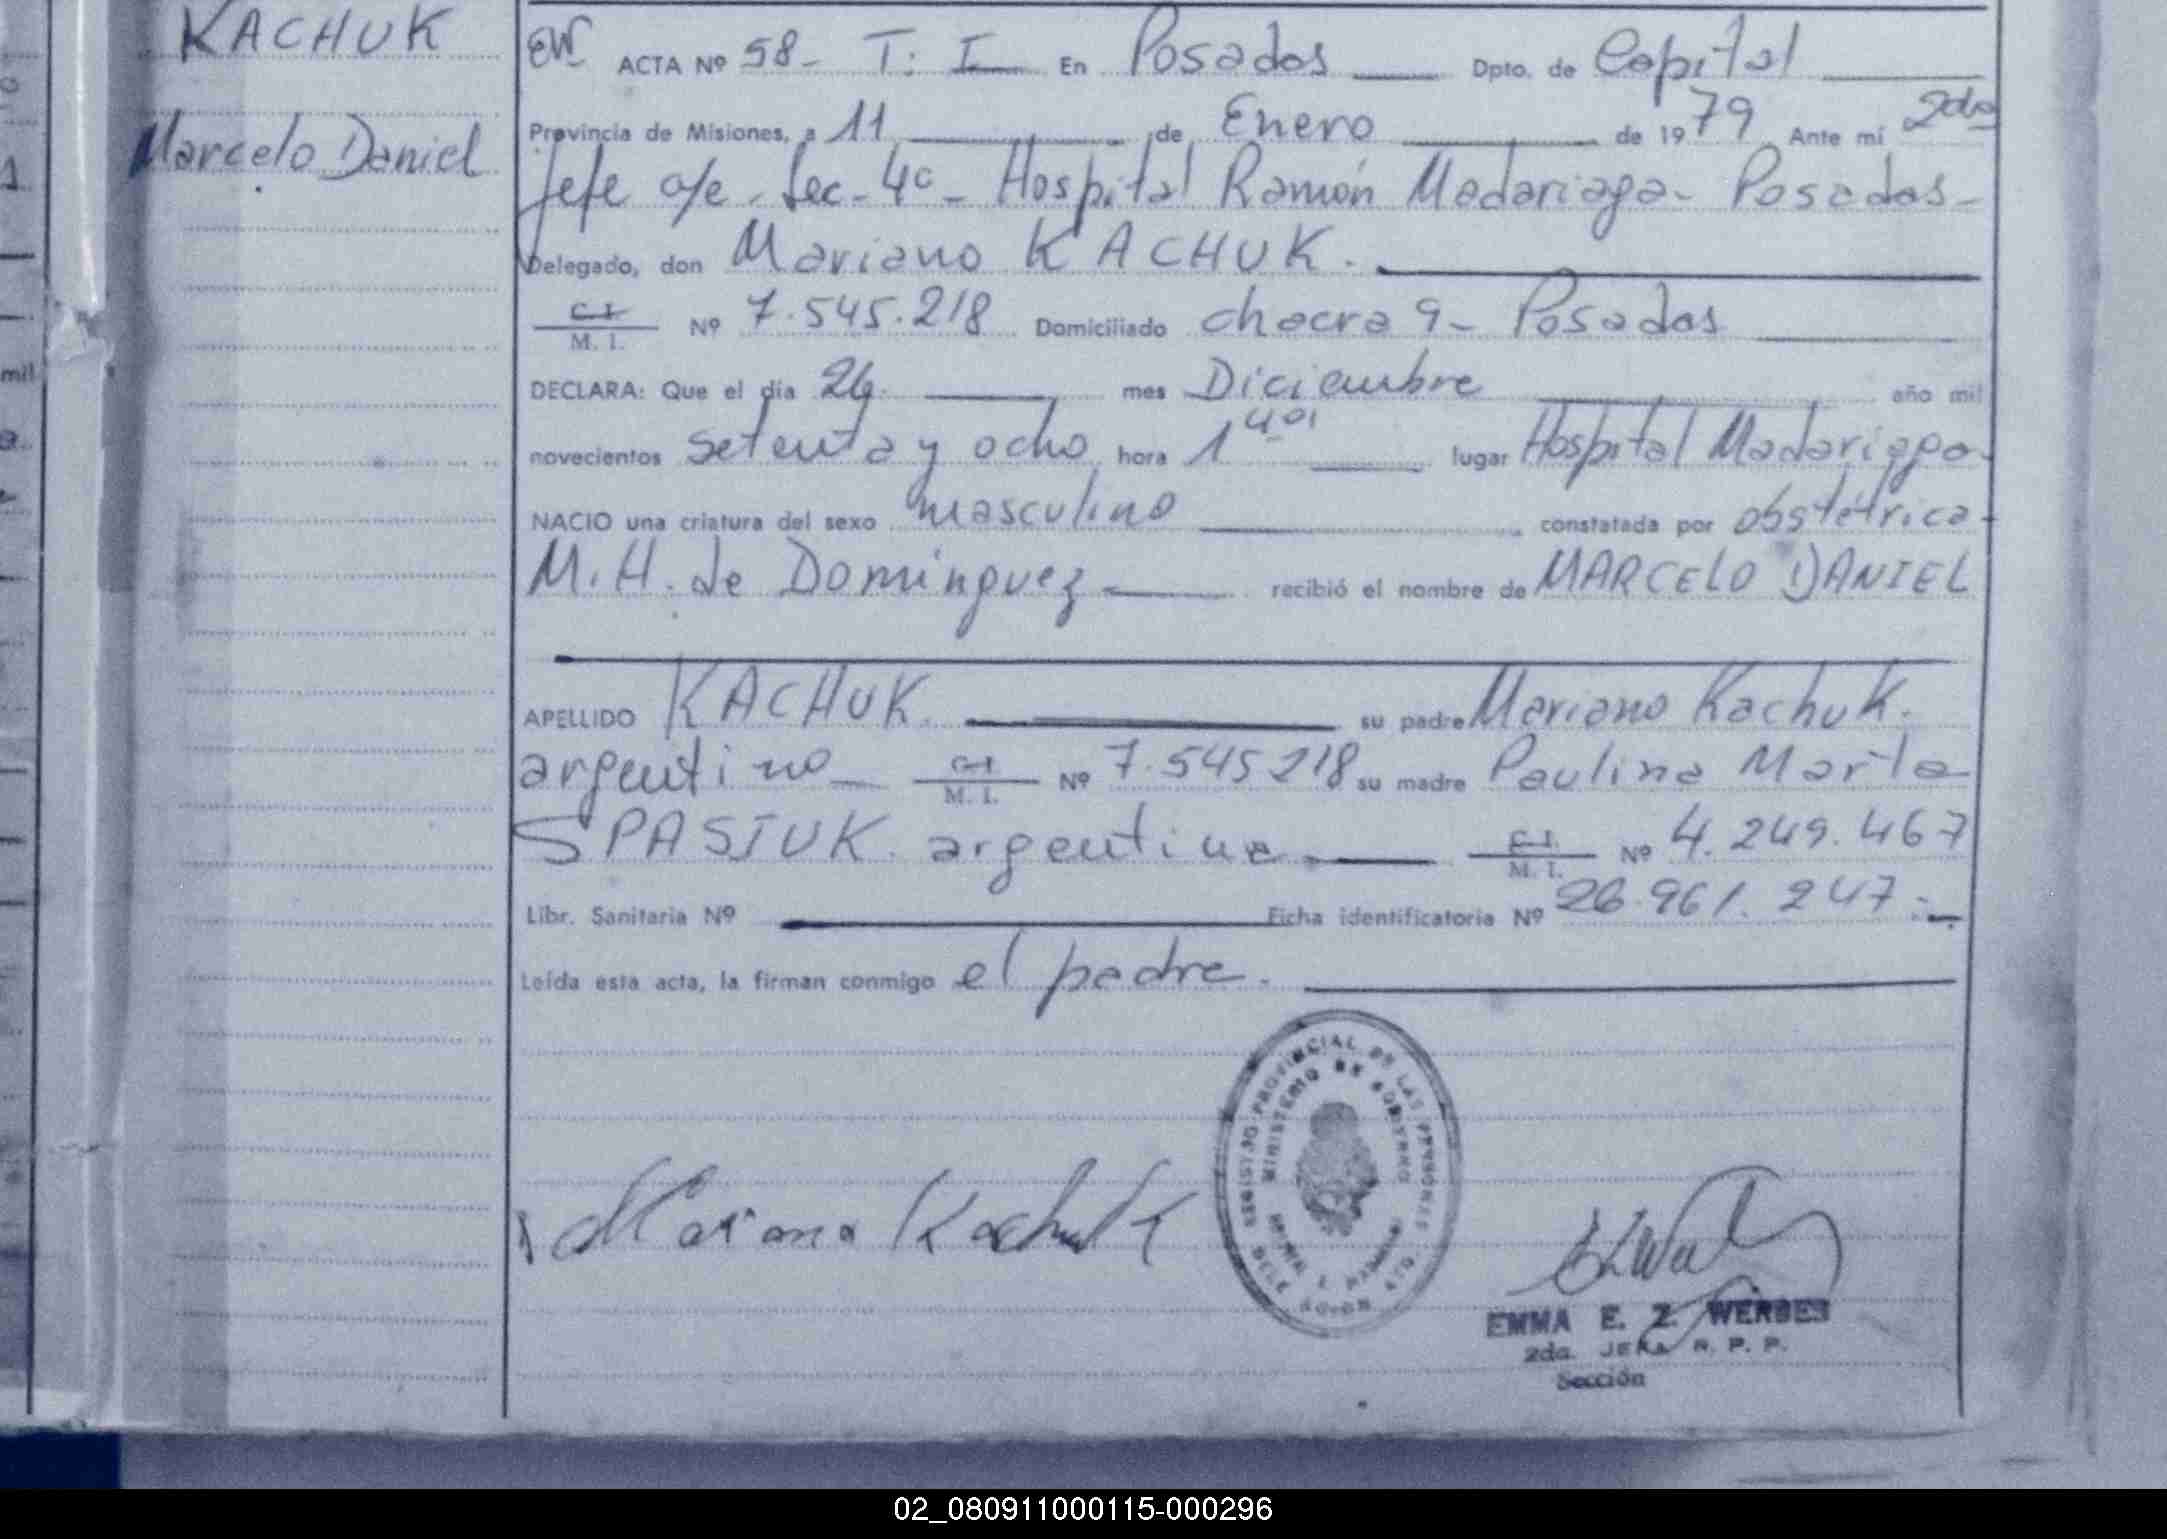 KACHUK
Marcelo Daniel
EW ACTA Nº 58- T: I En Posadas Dpto. de Capital
Provincia de Misiones, a 11 de Enero de 1979 Ante mí 2da
Jefe a/e. Sec. 4º - Hospital Ramón Madariaga - Posadas -
Delegado, don Mariano KACHUK.
C I / M. I. Nº 7.545.218 Domiciliado chacra 9 - Posadas
DECLARA: Que el día 26. mes Diciembre año mil
novecientos setenta y ocho hora 1 lugar Hospital Madariaga.
NACIO una criatura del sexo masculino constatada por obstétrica -
M. H. de Domínguez recibió el nombre de MARCELO DANIEL
APELLIDO KACHUK. su padre Mariano Kachuk.
argentino C I / M. I. Nº 7.545218 su madre Paulina Marta
SPASIUK. argentina. C I / M. I. Nº 4.249.467
Libr. Sanitaria Nº Ficha identificatoria Nº 26.961.247.-
Leída esta acta, la firman conmigo el padre.
REGISTRO PROVINCIAL DE LAS PERSONAS
MINISTERIO DE GOBIERNO
Mariano Kachuk
EMMA E. Z. WERBES
2da. JEFA R. P. P.
Sección
02_080911000115-000296